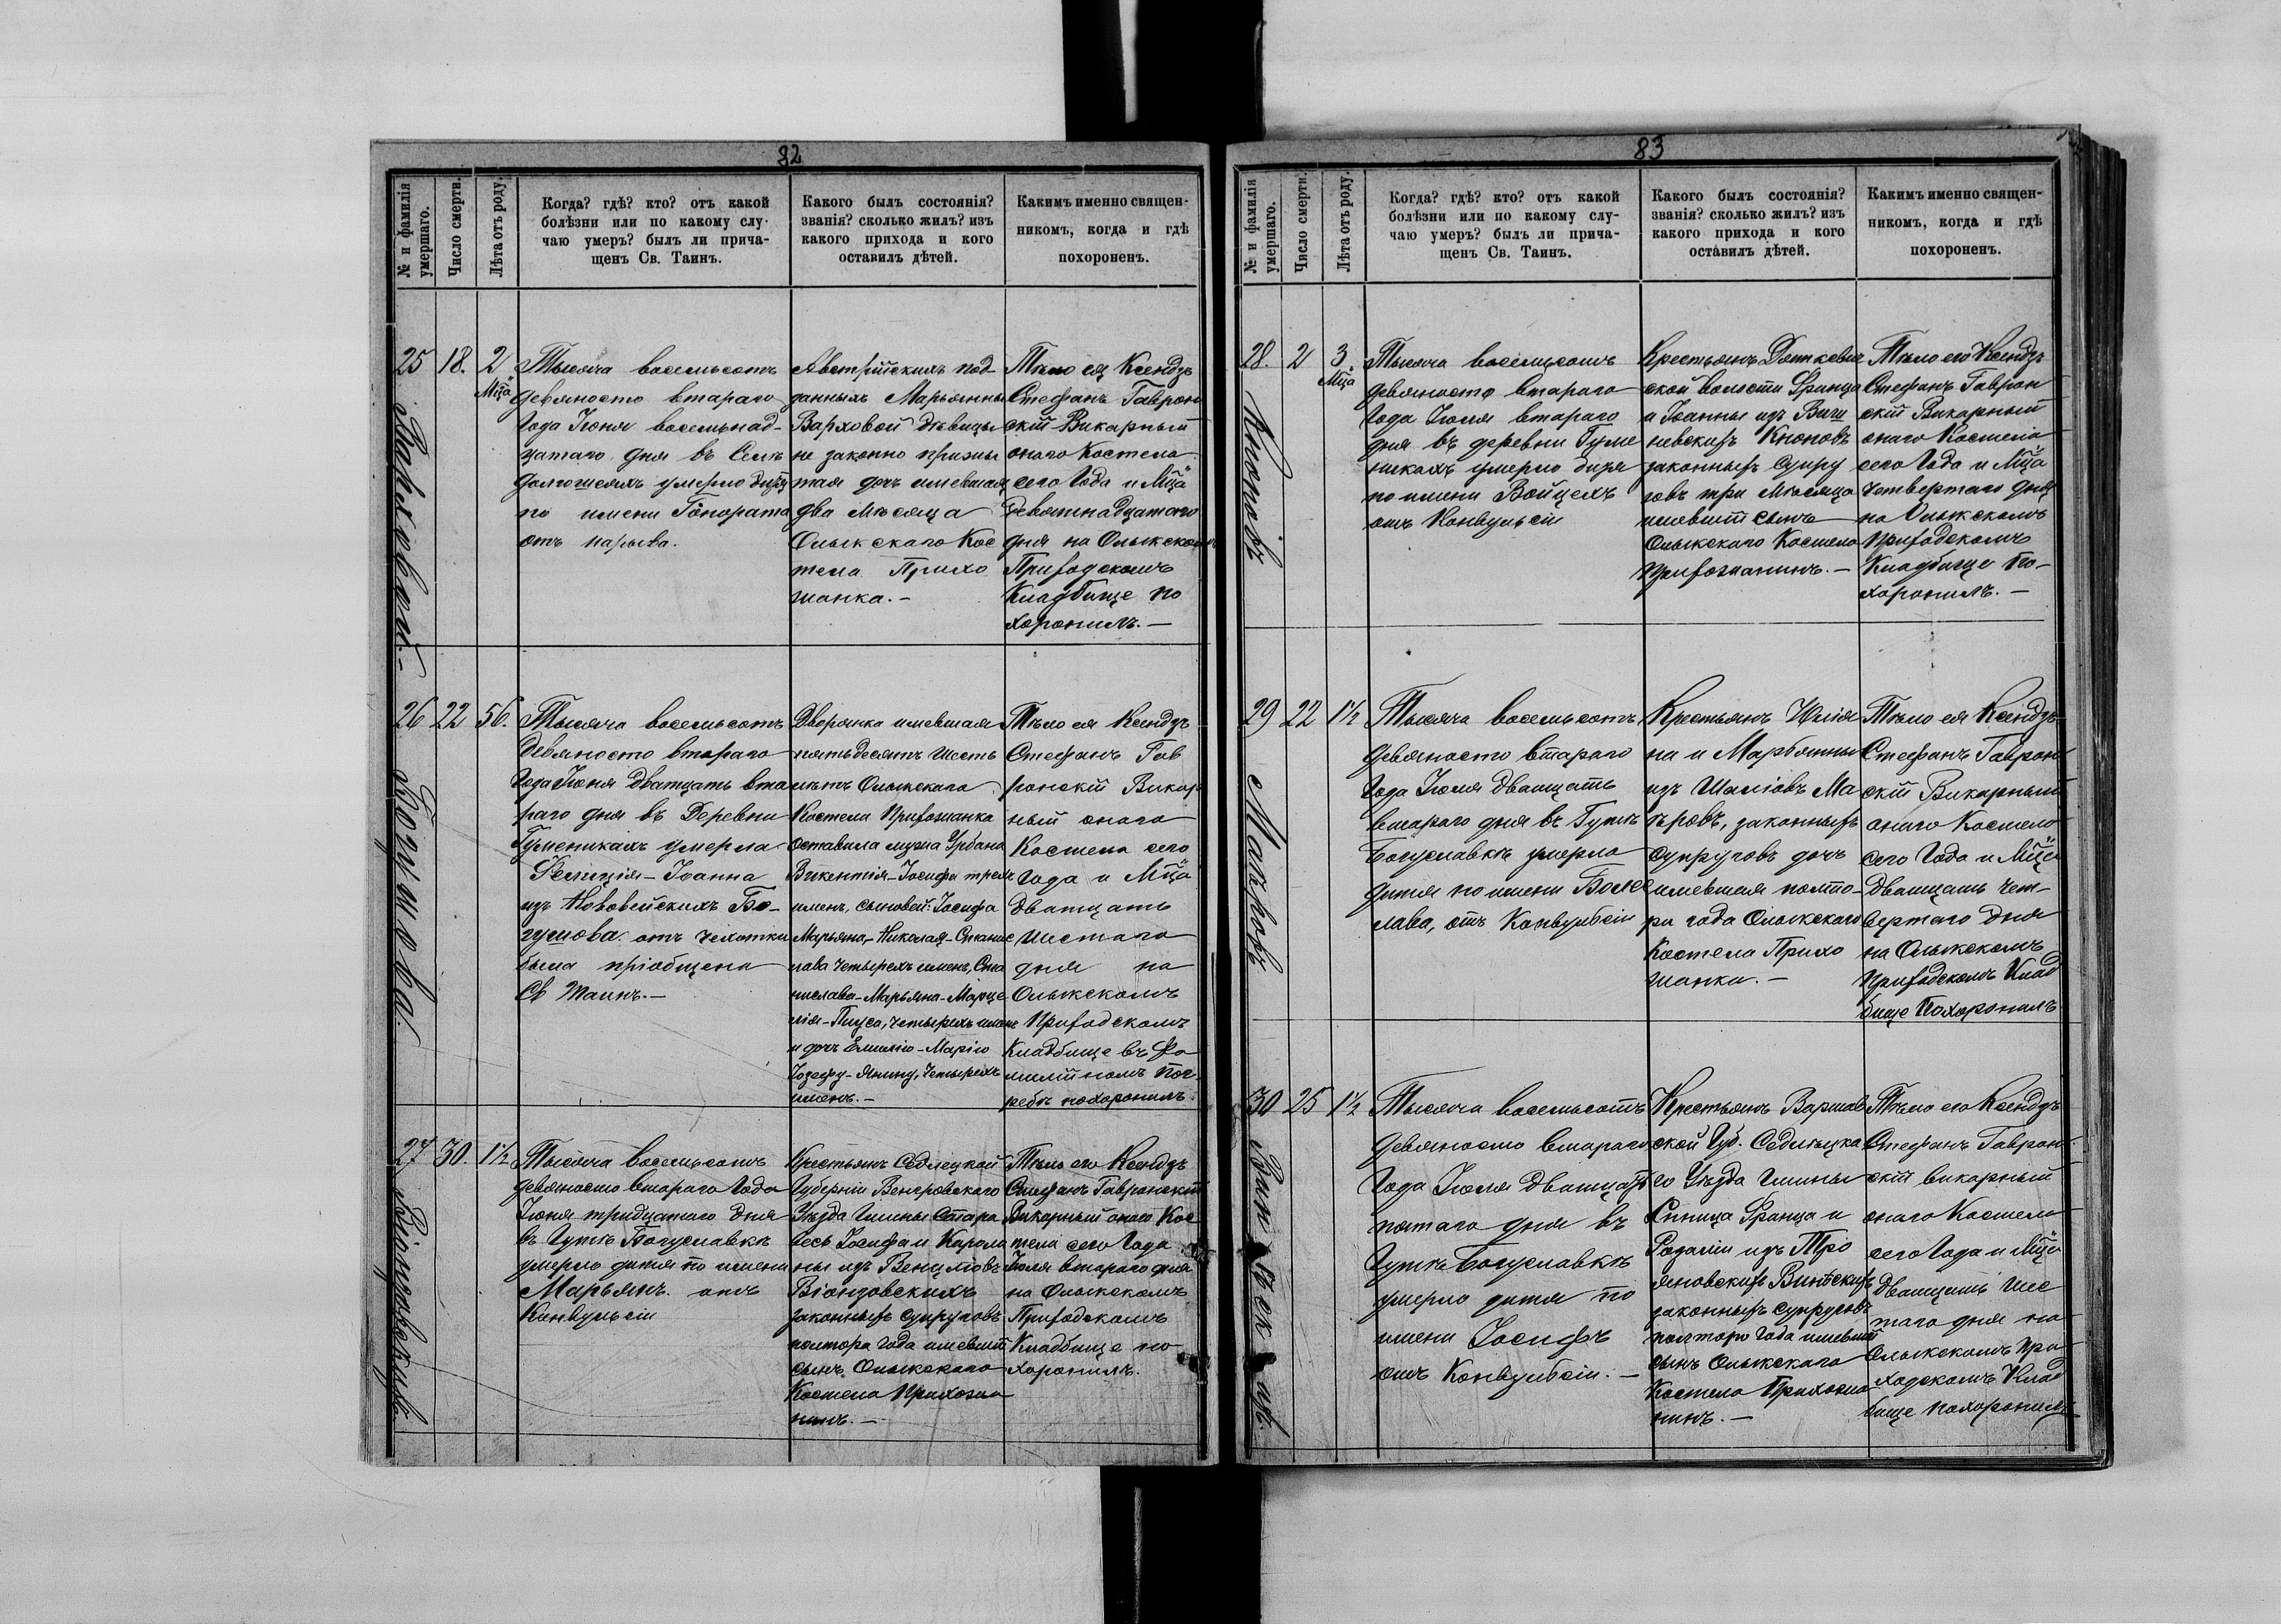 82
№ и фамилія умершаго.
Число смерти.
Лѣта отъ роду.
Когда? гдѣ? кто? отъ какой
болѣзни или по какому слу-
чаю умеръ? былъ ли прича-
щенъ Св. Таинъ.
Какого былъ состоянія?
званія? сколько жилъ? изъ
какого прихода и кого
оставилъ дѣтей.
Какимъ именно священ-
никомъ, когда и гдѣ
похороненъ.
25
18.
2
Мца
Тысяча восемьсотъ
девяносто втараго
Года Іюня восемьнад-
цатаго дня въ Селѣ
Долгошеяхъ умерло дитя
по имени Гонората
отъ нарыва.
Австрійскихъ под
данныхъ Марьянны
Варховой дѣвицы
не законно прижи
тая дочь имевшая
два мѣсяца
Олыкскаго Кос
тела Прихо
жанка.-
Тѣло ея Ксендзъ
Стефанъ Гаврон
скій Викарный
онаго Костела
сего Года и Мца
Девятнадцатаго
дня на Олыкскомъ
Приходскомъ
Кладбище по
хоронилъ.-
26
22
56.
Тысяча восемьсотъ
девяносто втараго
Года Іюня двадцать вта
раго дня въ Деревни
Гуменикахъ умерла
Фелиція-Іоанна
изъ Нововейскихъ Бо-
гушова. отъ чехотки
была пріобщена
Св Таинъ.-
Дворянка имевшая
пятьдесятъ шесть
лѣтъ Олыкскаго
Костела Прихожанка
оставила мужа Урбана
Викентія-Іосифа трехъ
именъ, сыновей: Іосифа
Марьяна-Николая-Станис
лава четырехъ именъ, Ста
нислава-Марьяна-Марце
лія-Пиуса, четырехъ именъ
и дочь Емилію-Марію
Іозефу-Янину, четырехъ
именъ.-
Тѣло ея Ксендзъ
Стефанъ Гав
ронскій Викар
ный онаго
Костела сего
Года и Мца
двадцать
шестаго
дня на
Олыкскомъ
Приходскомъ
Кладбище въ Фа
милійномъ Пог-
ребѣ похоронилъ.
27
30.
1½
Тысяча восемьсотъ
девяносто втараго Года
Іюня тридцатаго дня
въ Гутѣ Богуславкѣ
умерло дитя по имени
Марьянъ. отъ
Конвульсіи
Крестьянъ Седлецкой
Губерніи Венгровскаго
Уѣзда Гмины Стара
весь Іосифа и Кароли
ны изъ
законныхъ супруговъ
полтора года имевшій
сынъ Олыкскаго
Костела Прихожа
нинъ.-
Тѣло его Ксендзъ
Стефанъ Гавронскій
Викарный онаго Кос
тела сего Года
Іюля втараго дня
на Олыкскомъ
Приходскомъ
Кладбище по-
хоронилъ.
83
№ и фамилія умершаго.
Число смерти.
Лѣта отъ роду.
Когда? гдѣ? кто? отъ какой
болѣзни или по какому слу-
чаю умеръ? былъ ли прича-
щенъ Св. Таинъ.
Какого былъ состоянія?
званія? сколько жилъ? изъ
какого прихода и кого
оставилъ дѣтей.
Какимъ именно священ-
никомъ, когда и гдѣ
похороненъ.
28.
2
3
Мца
Кноповъ
Тысяча восемьсотъ
девяносто втараго
Года Іюля втараго
дня въ деревни Гуме
никахъ умерло дитя
по имени Войцехъ
отъ Конвульсіи
Крестьянъ Дяткевич
ской волости Франца
и Іоанны изъ Виш
невскихъ Кноповъ
законныхъ Супру
говъ три мѣсяца
имевшій сынъ
Олыкскаго Костела
Прихожанинъ.-
Тѣло его Ксендзъ
Стефанъ Гаврон
скій Викарный
онаго Костела
сего Года и Мца
Четвертаго дня
на Олыкскомъ
Приходскомъ
Кладбище по-
хоронилъ.-
29
22
1½
Мазъровъ
Тысяча восемьсотъ
девяносто втараго
Года Іюля двадцать
втараго дня въ Гутѣ
Богуславкѣ умерло
дитя по имени Болес
лава, отъ Конвульсіи
Крестьянъ Юлія
на и Марьянны
изъ Ма
ровъ, законныхъ
супруговъ дочь
имевшая полто-
ра года Олыкскаго
Костела Прихо
жанка.-
Тѣло ея Ксендзъ
Стефанъ Гаврон
скій Викарный
онаго Костела
сего Года и Мца
двадцать чет-
вертаго дня
на Олыкскомъ
Приходскомъ Клад
бище Похоронилъ
30
25
1½
Тысяча восемьсотъ
девяносто втараго
Года Іюля двадцать
пятаго дня въ
Гутѣ Богуславкѣ
умерло дитя по
имени Іосифъ
отъ Конвульсіи.-
Крестьянъ Варшав
ской Губ. Седлецка
го Уѣзда Гмины
Франца и
Розаліи изъ Тро
яновскихъ
законныхъ супруговъ
полтора года имевшій
сынъ Олыкскаго
Костела Прихожа
нинъ.-
Тѣло его Ксендзъ
Стефанъ Гаврон
скій викарный
онаго Костела
сего Года и Мца
двадцать шес
таго дня на
Олыкскомъ При
ходскомъ Клад
бище похоронилъ